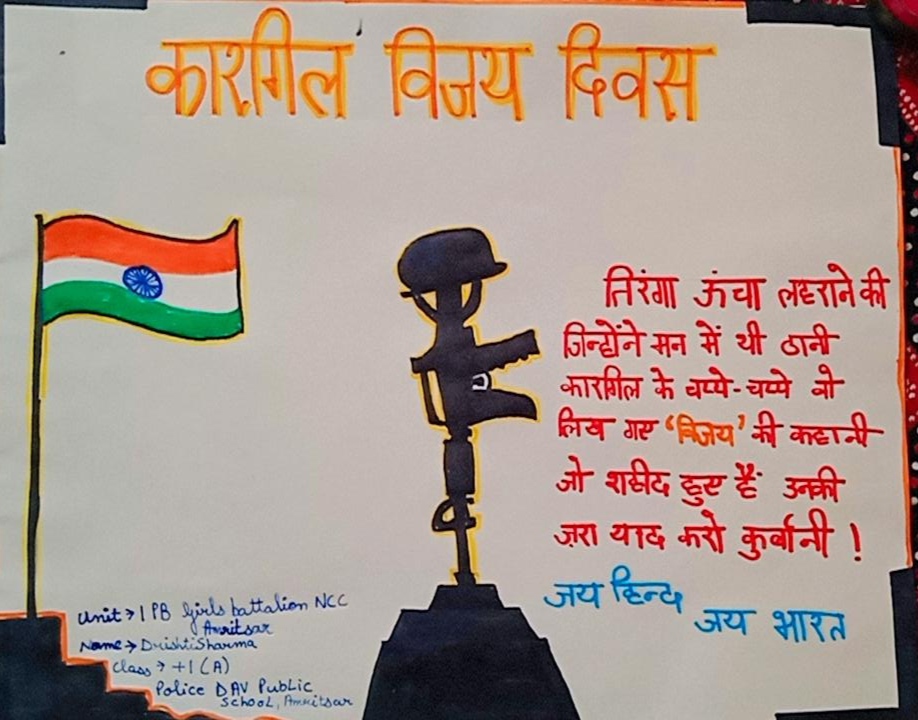 कारगिल विजय दिवस
तिरंगा ऊंचा लहराने की
जिन्होंने मन में थी ठानी
कारगिल के चप्पे-चप्पे वो
लिख गए 'विजय' की कहानी
जो शहीद हुए हैं उनकी
ज़रा याद करो कुर्बानी !
जय हिन्द
जय भारत
Unit → 1 PB Girls battalion NCC
Amritsar
Name → Drishti Sharma
Class → +1 (A)
Police DAV Public
School, Amritsar